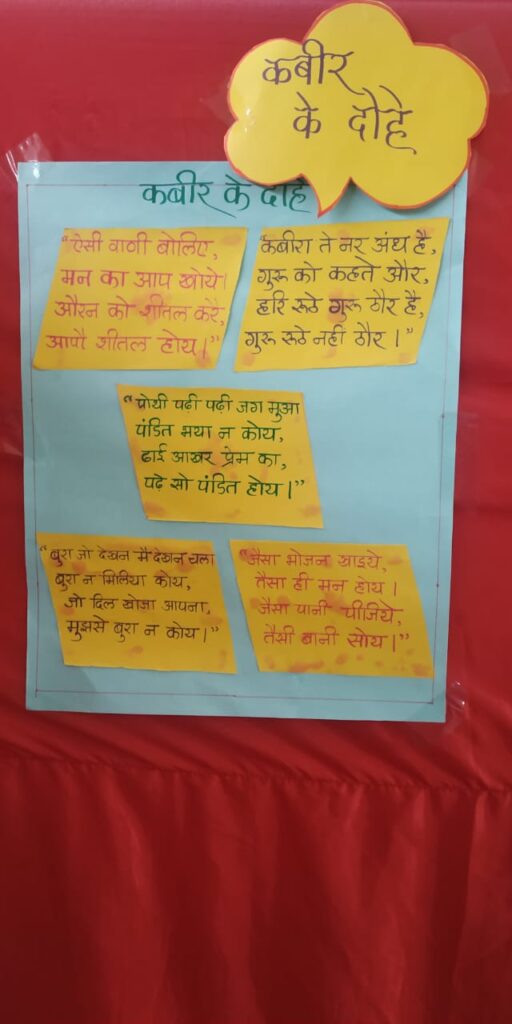 कबीर
के दोहे
कबीर के दोहे
"ऐसी वाणी बोलिए,
मन का आप खोये।
औरन को शीतल करै,
आपौ शीतल होय।"
"कबीरा ते नर अंध है,
गुरू को कहते और,
हरि रूठे गुरू ठौर है,
गुरू रूठे नही ठौर।"
"पोथी पढ़ी पढ़ी जग मुआ
पंडित भया न कोय,
ढाई आखर प्रेम का,
पढ़े सो पंडित होय।"
"बुरा जो देखन मैं देखन चला
बुरा न मिलिया कोय,
जो दिल खोजा आपना,
मुझसे बुरा न कोय।"
"जैसा भोजन खाइये,
तैसा ही मन होय।
जैसा पानी पीजिये,
तैसी बानी सोय।"